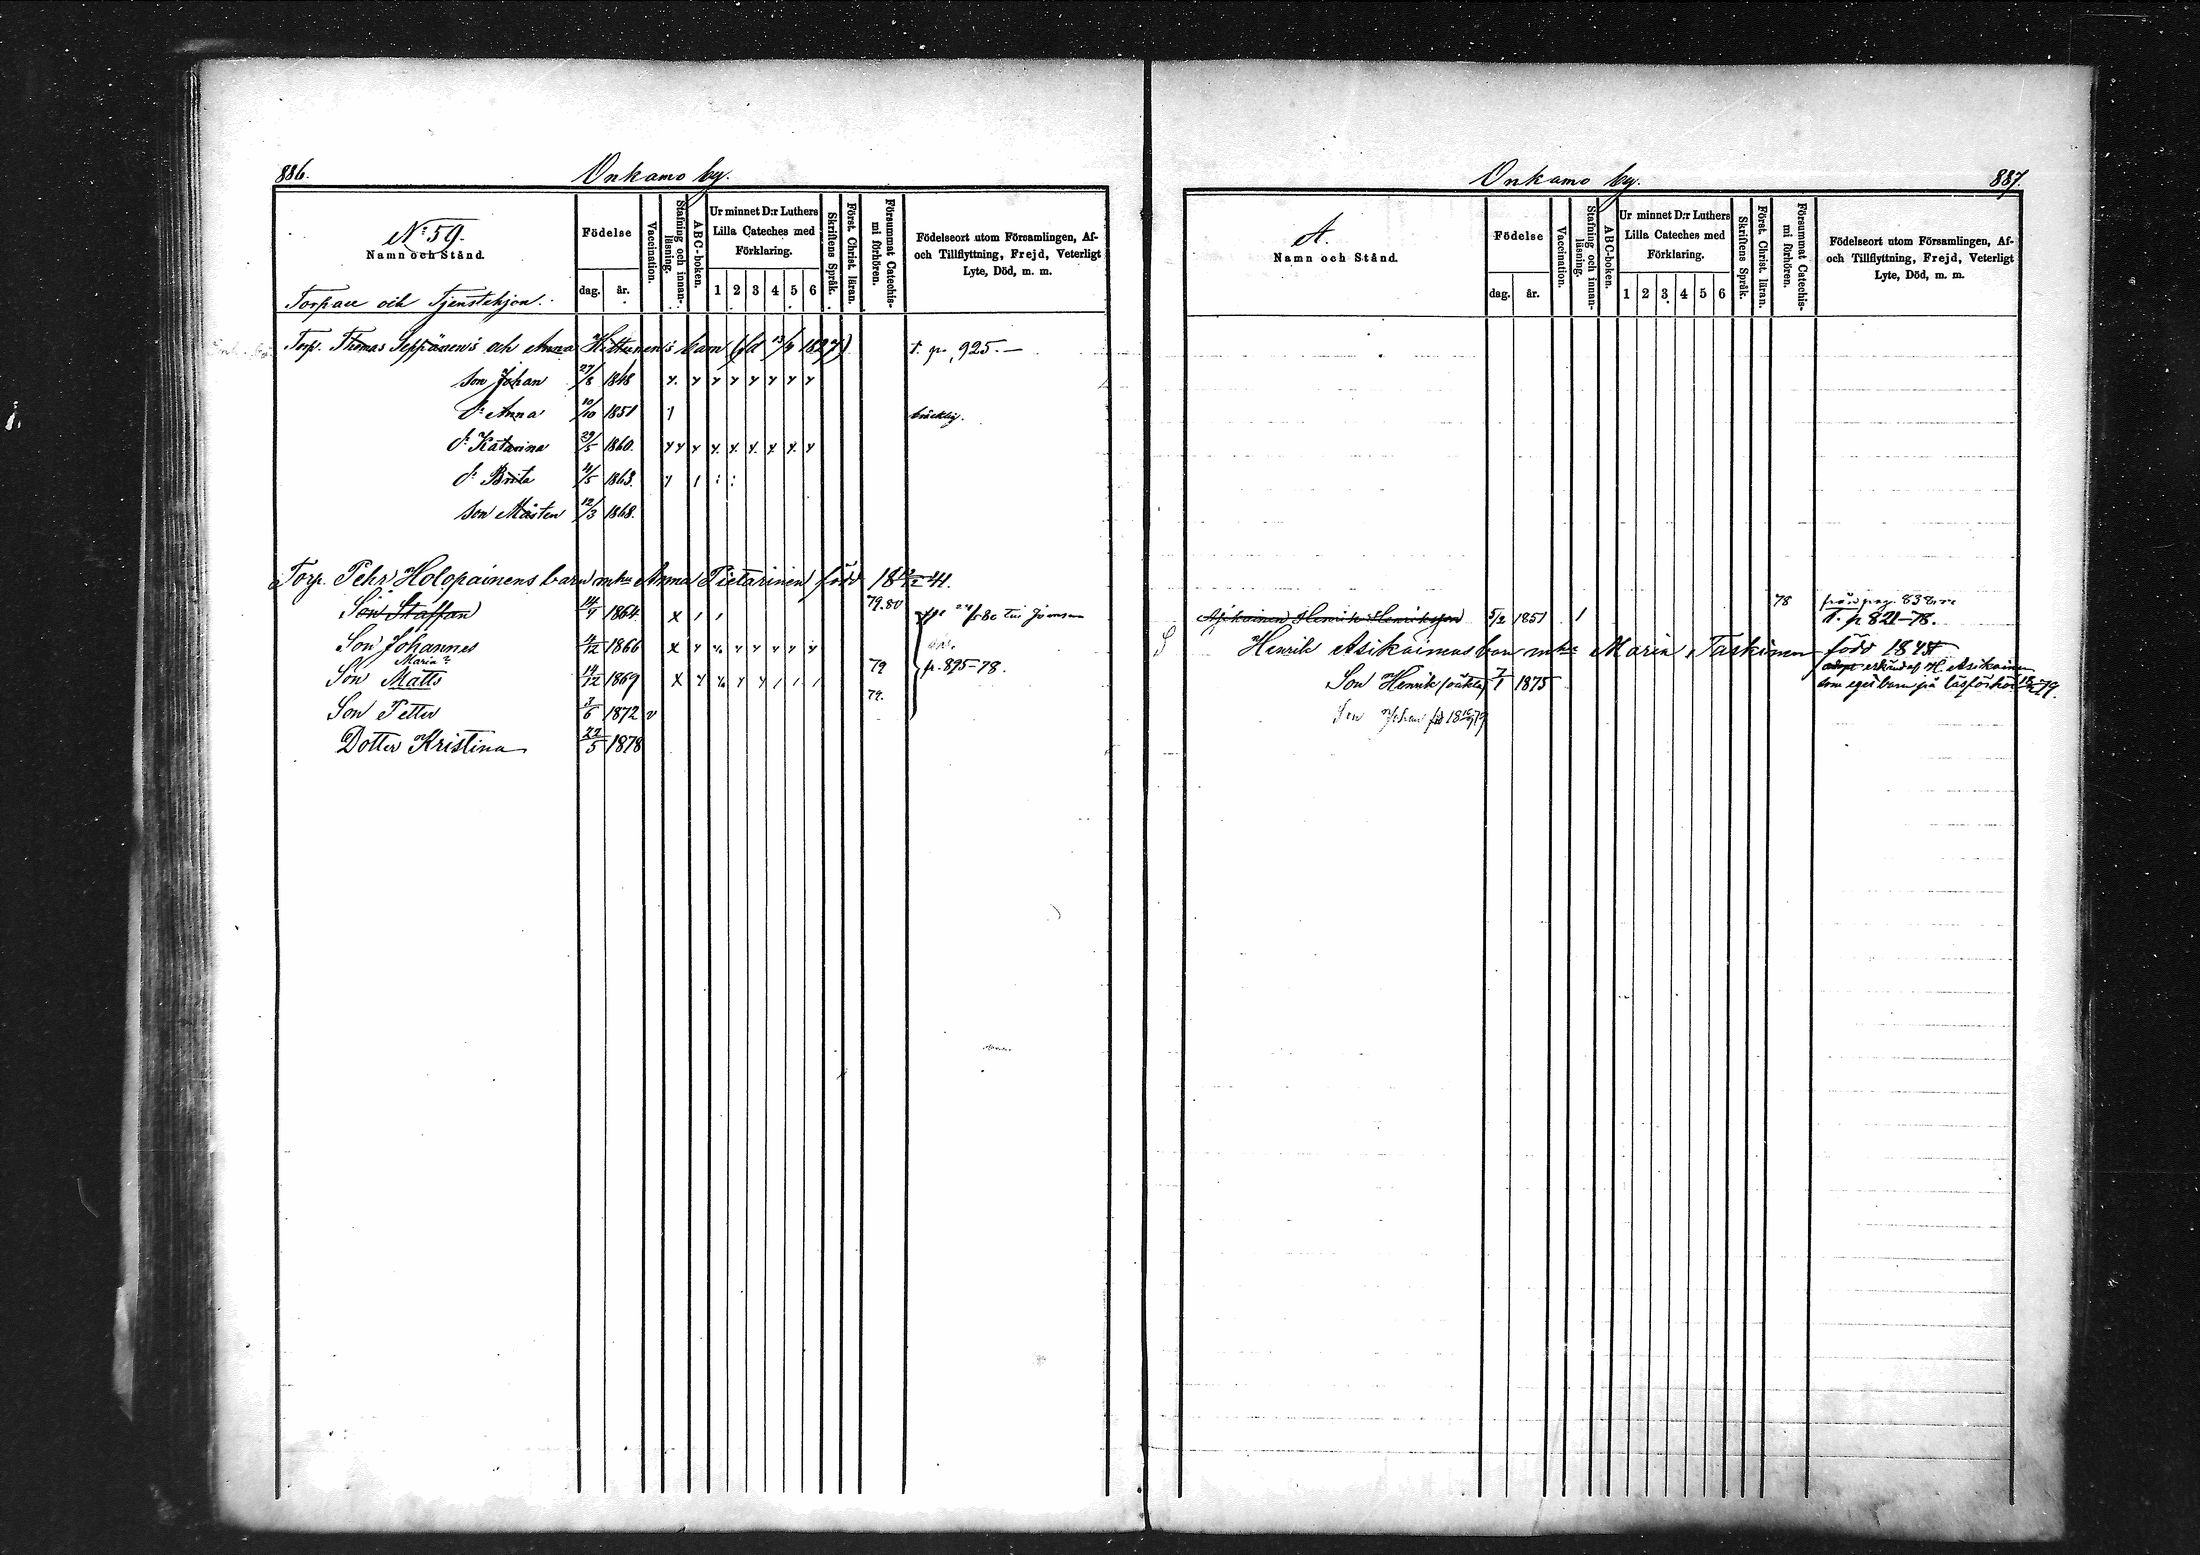 886.
Onkamo by.
N:o 59.
Namn och Stånd.
Födelse
dag. år.
Vaccination.
Stafning och innanläsning.
ABC-boken.
Ur minnet D:r Luthers
Lilla Cateches med
Förklaring.
1 2 3 4 5 6
Skriftens Språk.
Först. Christ. läran.
Försummat Catechismi förhören.
Födelseort utom Församlingen, Af-
och Tillflyttning, Frejd, Veterligt
Lyte, Död, m. m.
Torpare och Tjenstehjon.
Torp. Thomas Seppänen's och Anna Hiltunen's barn 1827) t. p. 925.
son Johan 27/8 1848
d:r Anna 10/10 1851 bräcklig.
d:r Katarina 29/5 1860.
d:r Brita 4/5 1863.
son Mårten 12/3 1868.
Torp. Pehr Holopainens barn m hu Anna Pietarinen född 41.
Son Staffan 1864 79.80
Son Johannes 4/12 1866
Son Matts 14/12 1869 79 p. 895-78.
79.
Son Petter 3/6 1872 v
Dotter Kristina 22/5 1878
Onkamo by.
887.
A.
Namn och Stånd.
Födelse
dag. år.
Vaccination.
Stafning och innanläsning.
ABC-boken.
Ur minnet D:r Luthers
Lilla Cateches med
Förklaring.
1 2 3 4 5 6
Skriftens Språk.
Först. Christ. läran.
Försummat Catechismi förhören.
Födelseort utom Församlingen, Af-
och Tillflyttning, Frejd, Veterligt
Lyte, Död, m. m.
Asikainen Henrik Henriksson 5/2 1851 78 från pag. 838
t. p 821-78.
Henrik Asikainens barn m hu Maria Taskinen född
Son Henrik (oäkta) 7/1 1875 erkänd af H. Asikainen
som eget barn på läsförhör 79.
Son Johan